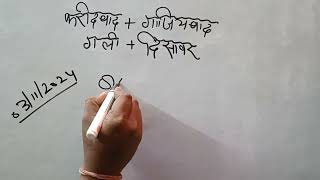 फरीदवाद + गाजियवाद
गली + दिसावर
03/11/2024